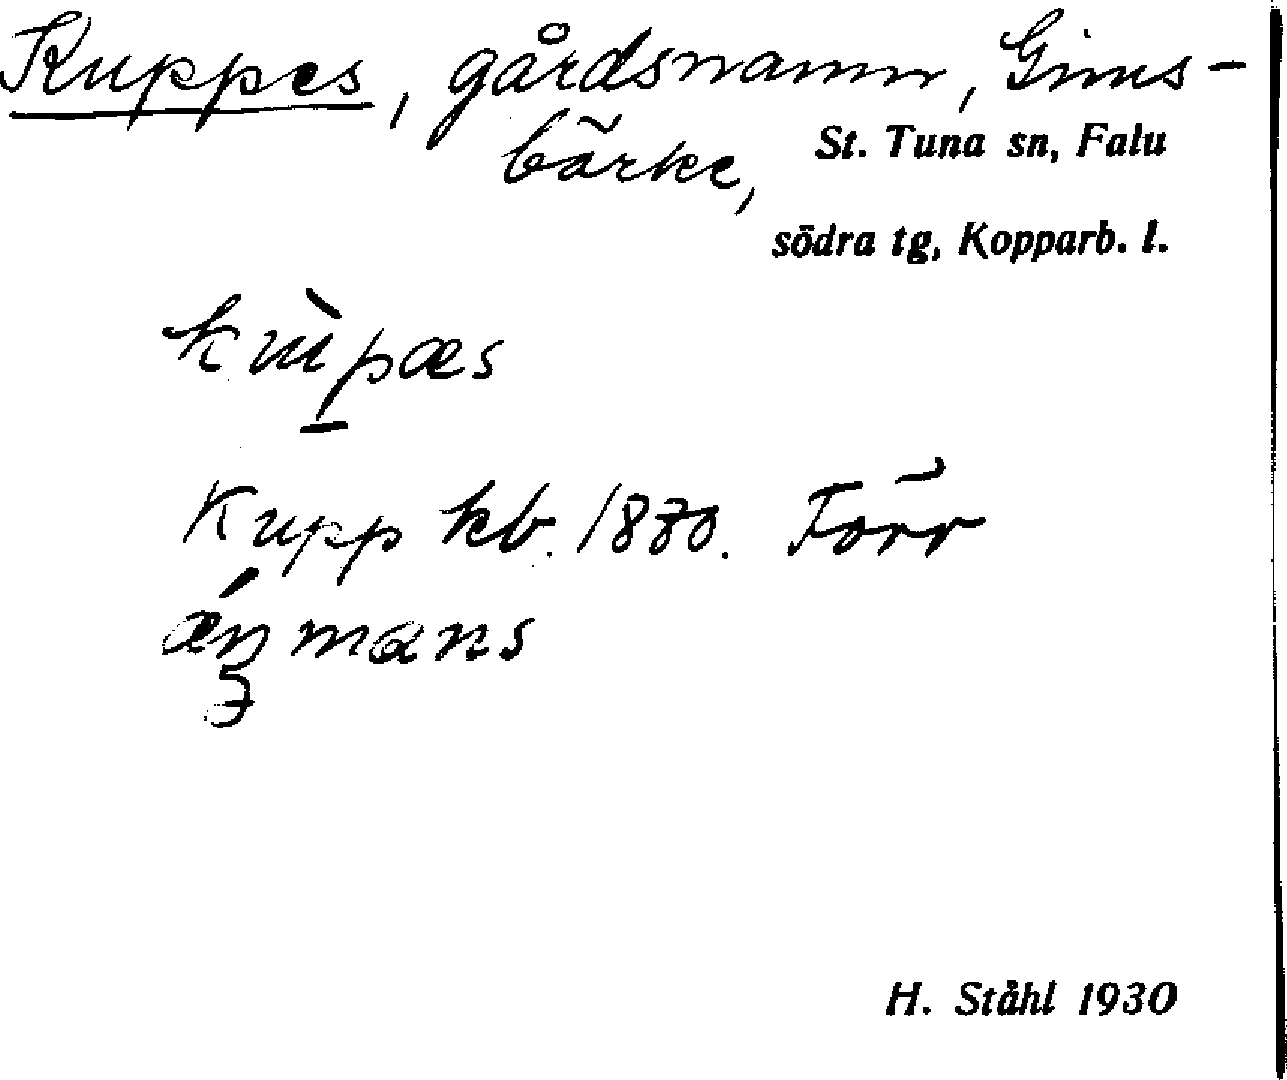 Kuppes, gårdsnamn, Gims-
bärke, St. Tuna sn, Falu
södra tg, Kopparb. l.
Kupp kb. 1870. Förr
H. Ståhl 1930